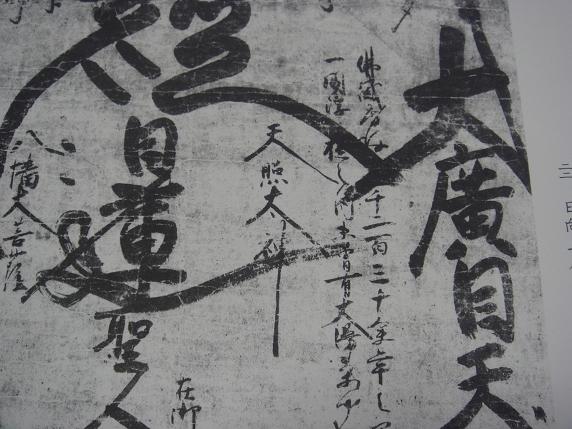 三
日向
大廣目天
佛滅度後 千二百三十余年之
一閻浮提之内未曾有大漫
天照太神
經
日蓮聖人
在御
八幡大菩薩